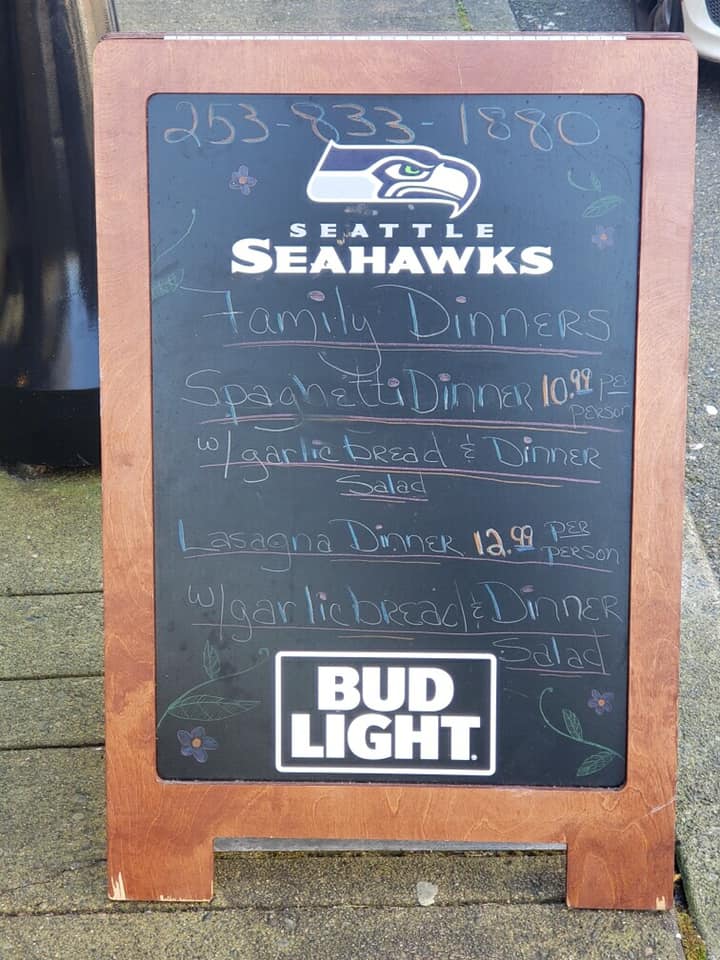 253-833-1880
SEATTLE
SEAHAWKS
Family Dinners
Spaghetti Dinner 10.99 PE
PERSON
w/ garlic bread & Dinner
Salad
Lasagna Dinner 12.99 PER
PERSON
w/garlic bread & Dinner
Salad
BUD
LIGHT.